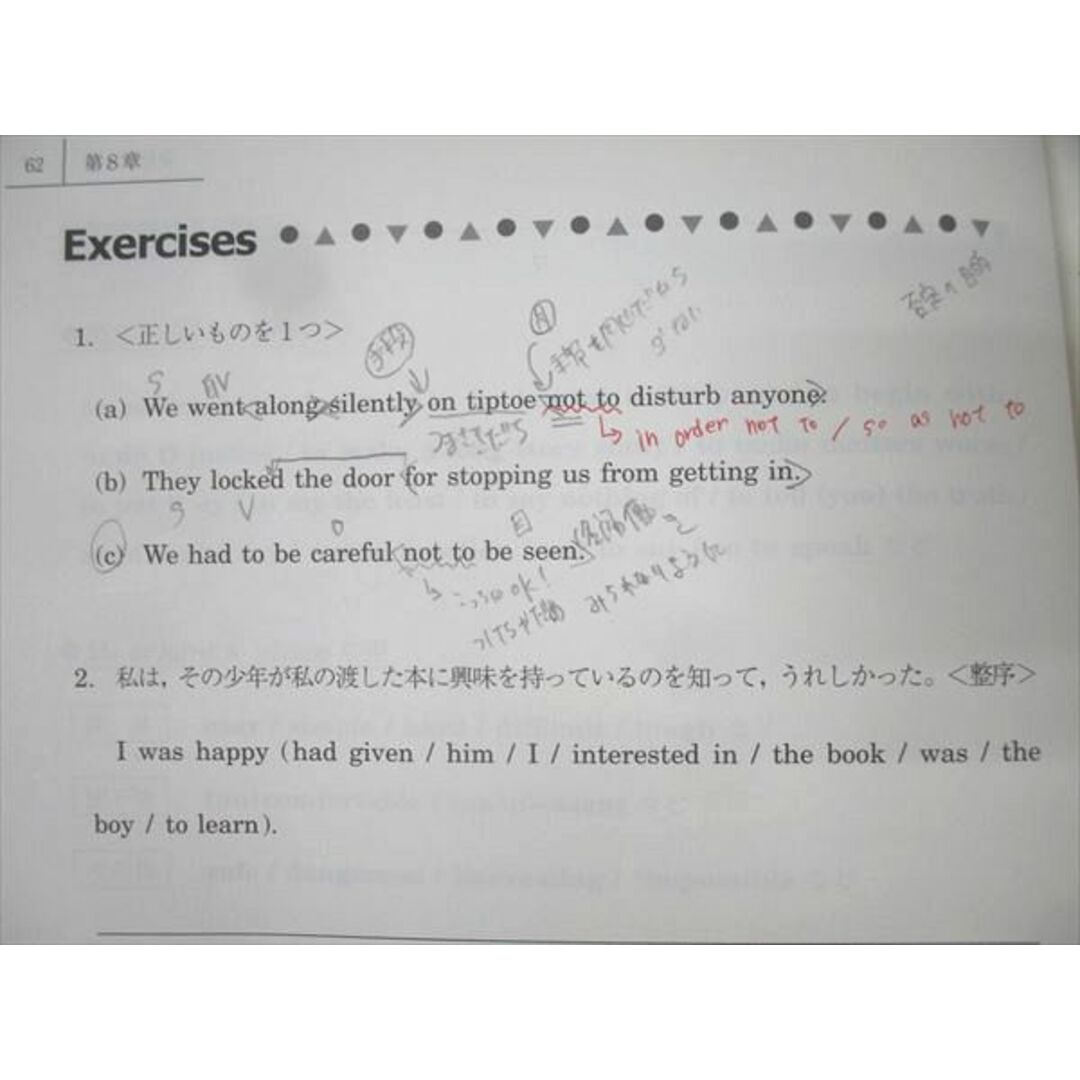 62 第8章
Exercises
1. <正しいものを1つ>
手段
目
否定の目的
S
(a) We went along silently on tiptoe not to disturb anyone.
つま先立ち
in order not to / so as not to
(b) They locked the door for stopping us from getting in.
S V O 目
(c) We had to be careful not to be seen.
みられないように
2. 私は,その少年が私の渡した本に興味を持っているのを知って,うれしかった。<整序>
I was happy (had given / him / I / interested in / the book / was / the
boy / to learn).